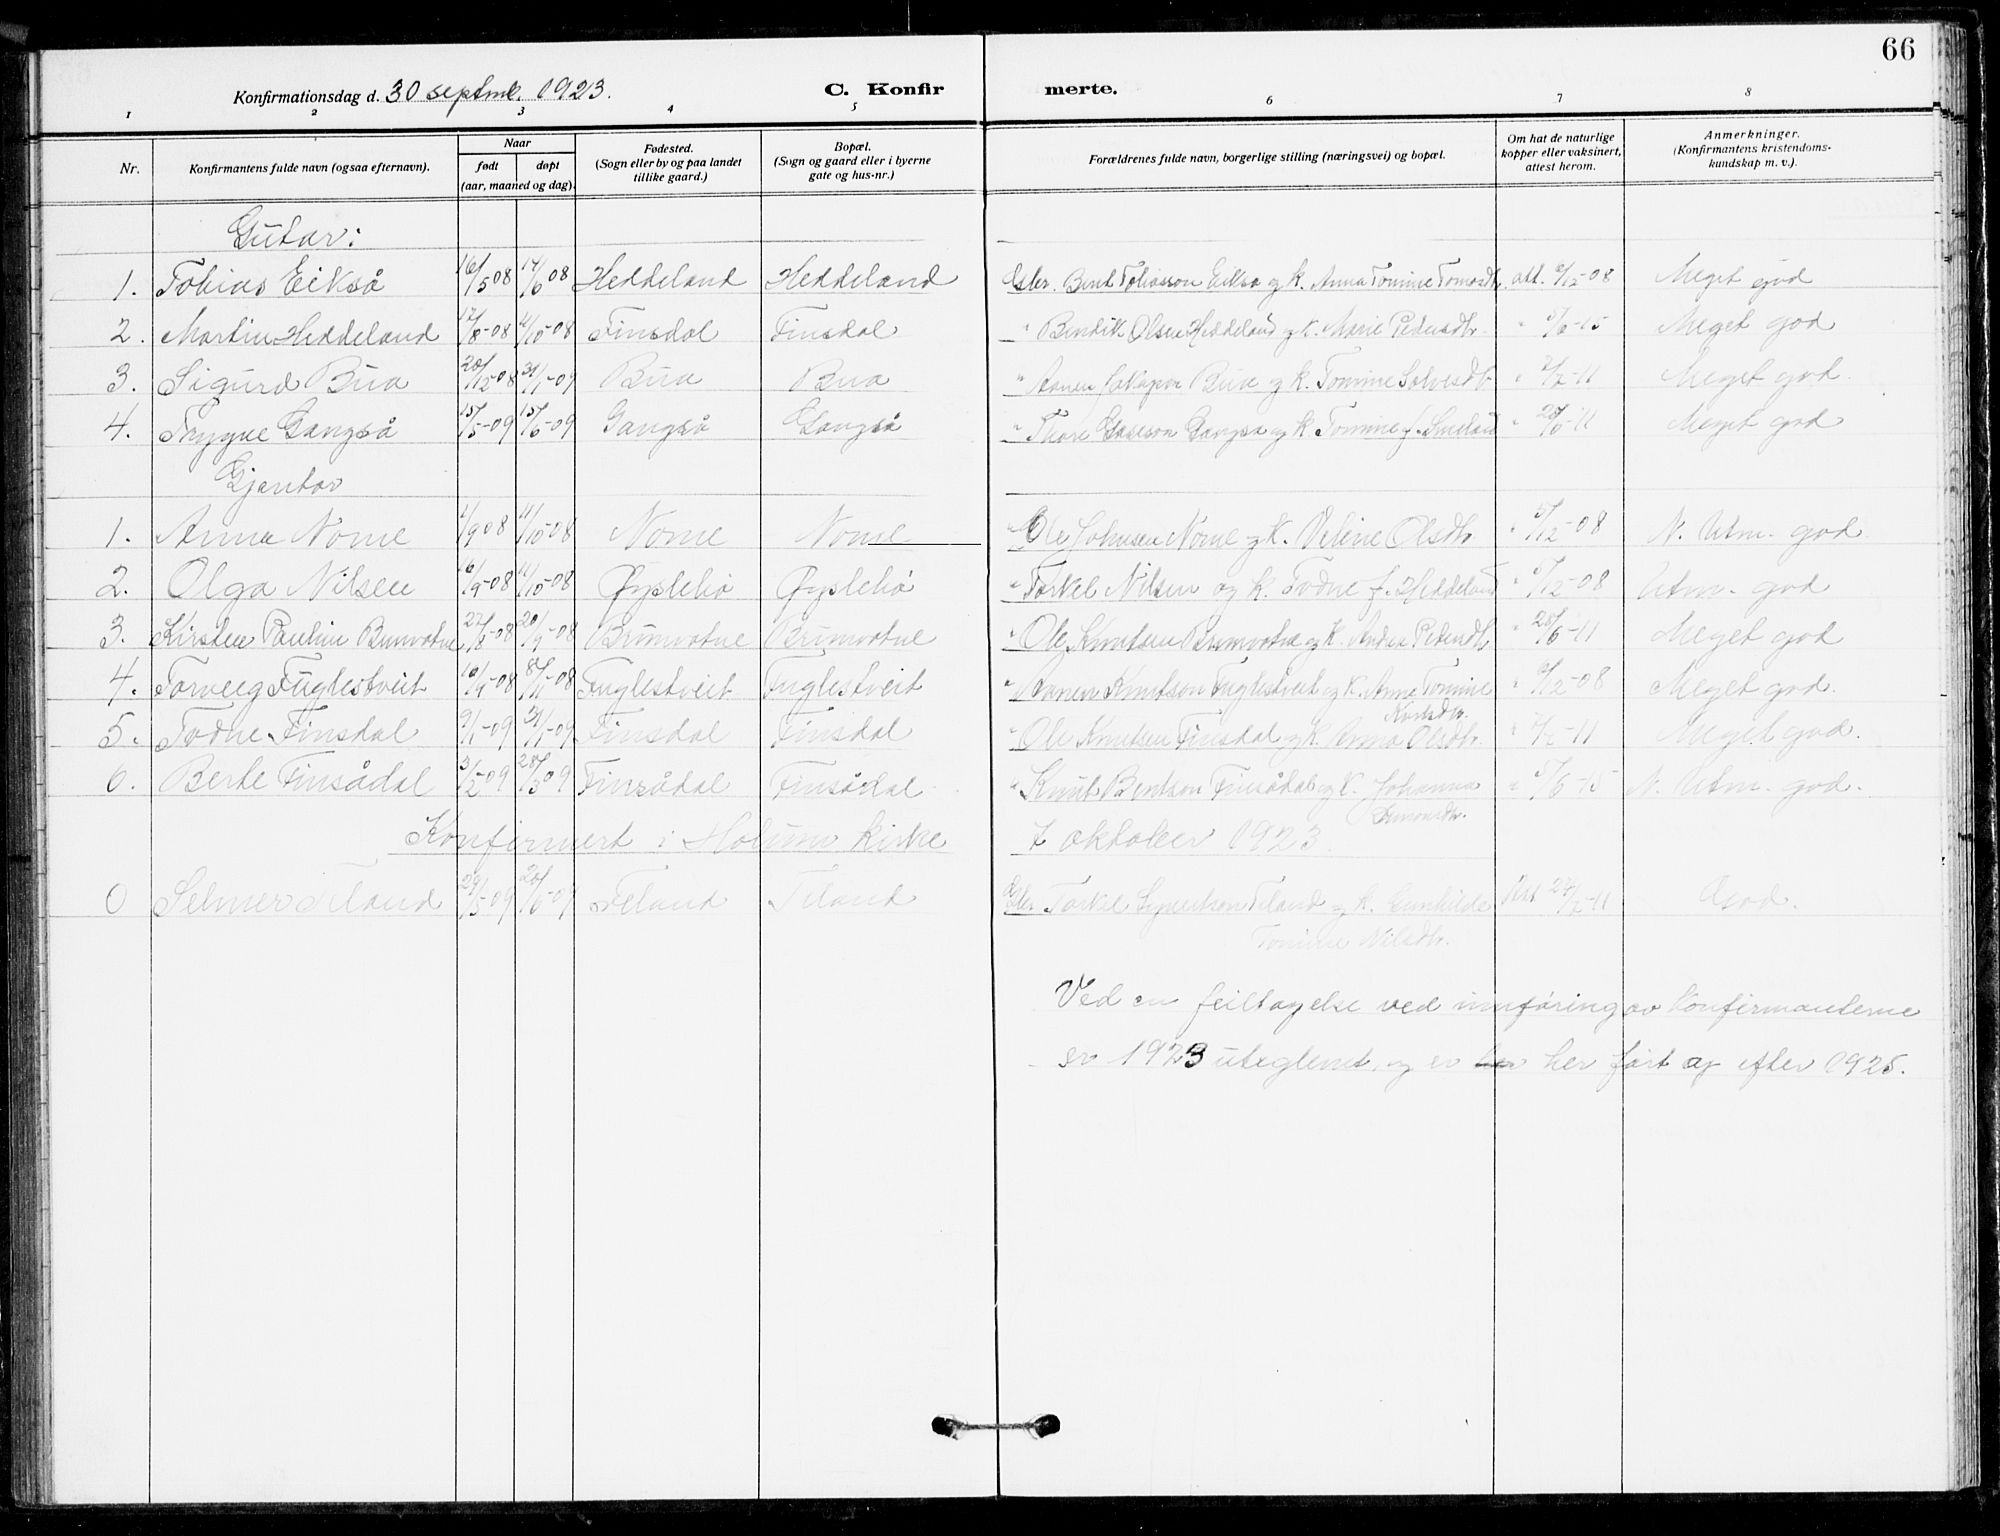 66
Konfirmationsdag d. 30 septmb. 1923. C. Konfirmerte.
1 2 3 4 5 6 7 8
Nr. Konfirmantens fulde navn (ogsaa efternavn). Naar født døpt (aar, maaned og dag). Fødested. (Sogn eller by og paa landet tillike gaard.) Bopæl. (Sogn og gaard eller i byerne gate og hus-nr.) Forældrenes fulde navn, borgerlige stilling (næringsvei) og bopæl. Om hat de naturlige kopper eller vaksinert, attest herom. Anmerkninger. (Konfirmantens kristendomskundskap m. v.).
Gutar:
1. Tobias Eikså 16/5 08 14/6 08 Heddeland Heddeland Gbr. Bent Tobiasson Eikså og k. Anna Tomine Tomasdtr. att. 6/12-08 Meget god
2. Martin Heddeland 17/8-08 11/10-08 Finsdal Finsdal " Bendik Olsen Heddeland og k. Marie Pedersdtr. " 5/6-15 Meget god
3. Sigurd Bua 20/12-08 31/1-09 Bua Bua " Aanen Jakobson Bua og k. Tomine Salvesdtr. " 2/7-11 Meget god.
4. Trygve Gangså 15/5-09 15/6-09 Gangså Gangså " Thore Gaseson Gangså og k. Tomine f. Smeland " 28/6-11 Meget god
Gjentor
1. Anna Nome 1/9 08 11/10-08 Nome Nome " Ole Johnsen Nome og k. Veline Olsdtr " 5/12-08 N. Utm. god
2. Olga Nilsen 16/9-08 11/10-08 Øyslebø Øyslebø " Torkel Nilsen og k. Todne f. Heddeland " 5/12-08 Utm. god
3. Kirsten Paulin Brunvatne 27/8-08 20/9-08 Brunvatne Brunvatne " Ole Knutsen Brunvatne og k. Andrea Pedersdtr " 28/6-11 Meget god
4. Torveig Fuglestveit 10/9-08 8/11-08 Fuglestveit Fuglestveit " Aanen Knutson Fuglestveit og k. Anna Tomine " 6/12-08 Meget god.
5. Todne Finsdal 9/1-09 31/1-09 Finsdal Finsdal " Ole Knutsen Finsdal og k. Anna Olsdtr. " 2/7-11 Meget god.
6. Berte Finsådal 3/2 09 28/3 09 Finsådal Finsådal " Knut Bentson Finsådal og k. Johanna " 5/6-15 N. Utm. god.
Konfirmert i Holum kirke 7 oktober 1923.
0 Selmer Teland 29/5-09 20/6-09 Teland Teland Gbr. Torkel Teland og k. Gunhilde Att 27/7-11 God.
Tomine Nilsdtr.
Ved en feiltagelse ved innføring av konfirmanterne
er 1923 uteglemt, og er her ført op efter 1925.